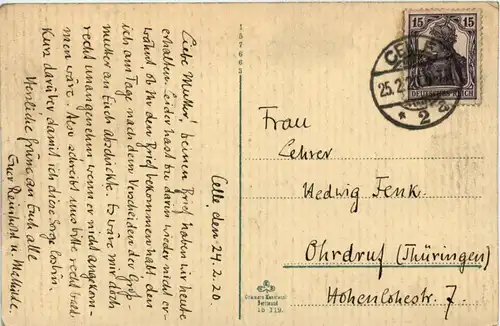 Celle, den 24.2.20.
Liebe Mutter, deinen Brief haben wir heute
erhalten. Leider hast du darin wieder nicht er-
wähnt, ob Ihr den Brief bekommen habt den
ich am Tage nach dem Verscheiden der Groß-
mutter an Euch abschickte. Es wäre mir doch
recht unangenehm wenn er nicht angekom-
men wäre. Also schreibt uns bitte recht bald
kurz darüber, damit ich diese Sorge los bin.
Herzliche Grüße an Euch alle
Euer Reinhold u. Mathilde.
157663
Frau
Lehrer
Hedwig Fenk.
Ohrdruf (Thüringen)
Hohenlohestr. 7.
15 15
DEUTSCHES REICH
CELLE
25.2.20
* 2 a
Dortmund
10 119.